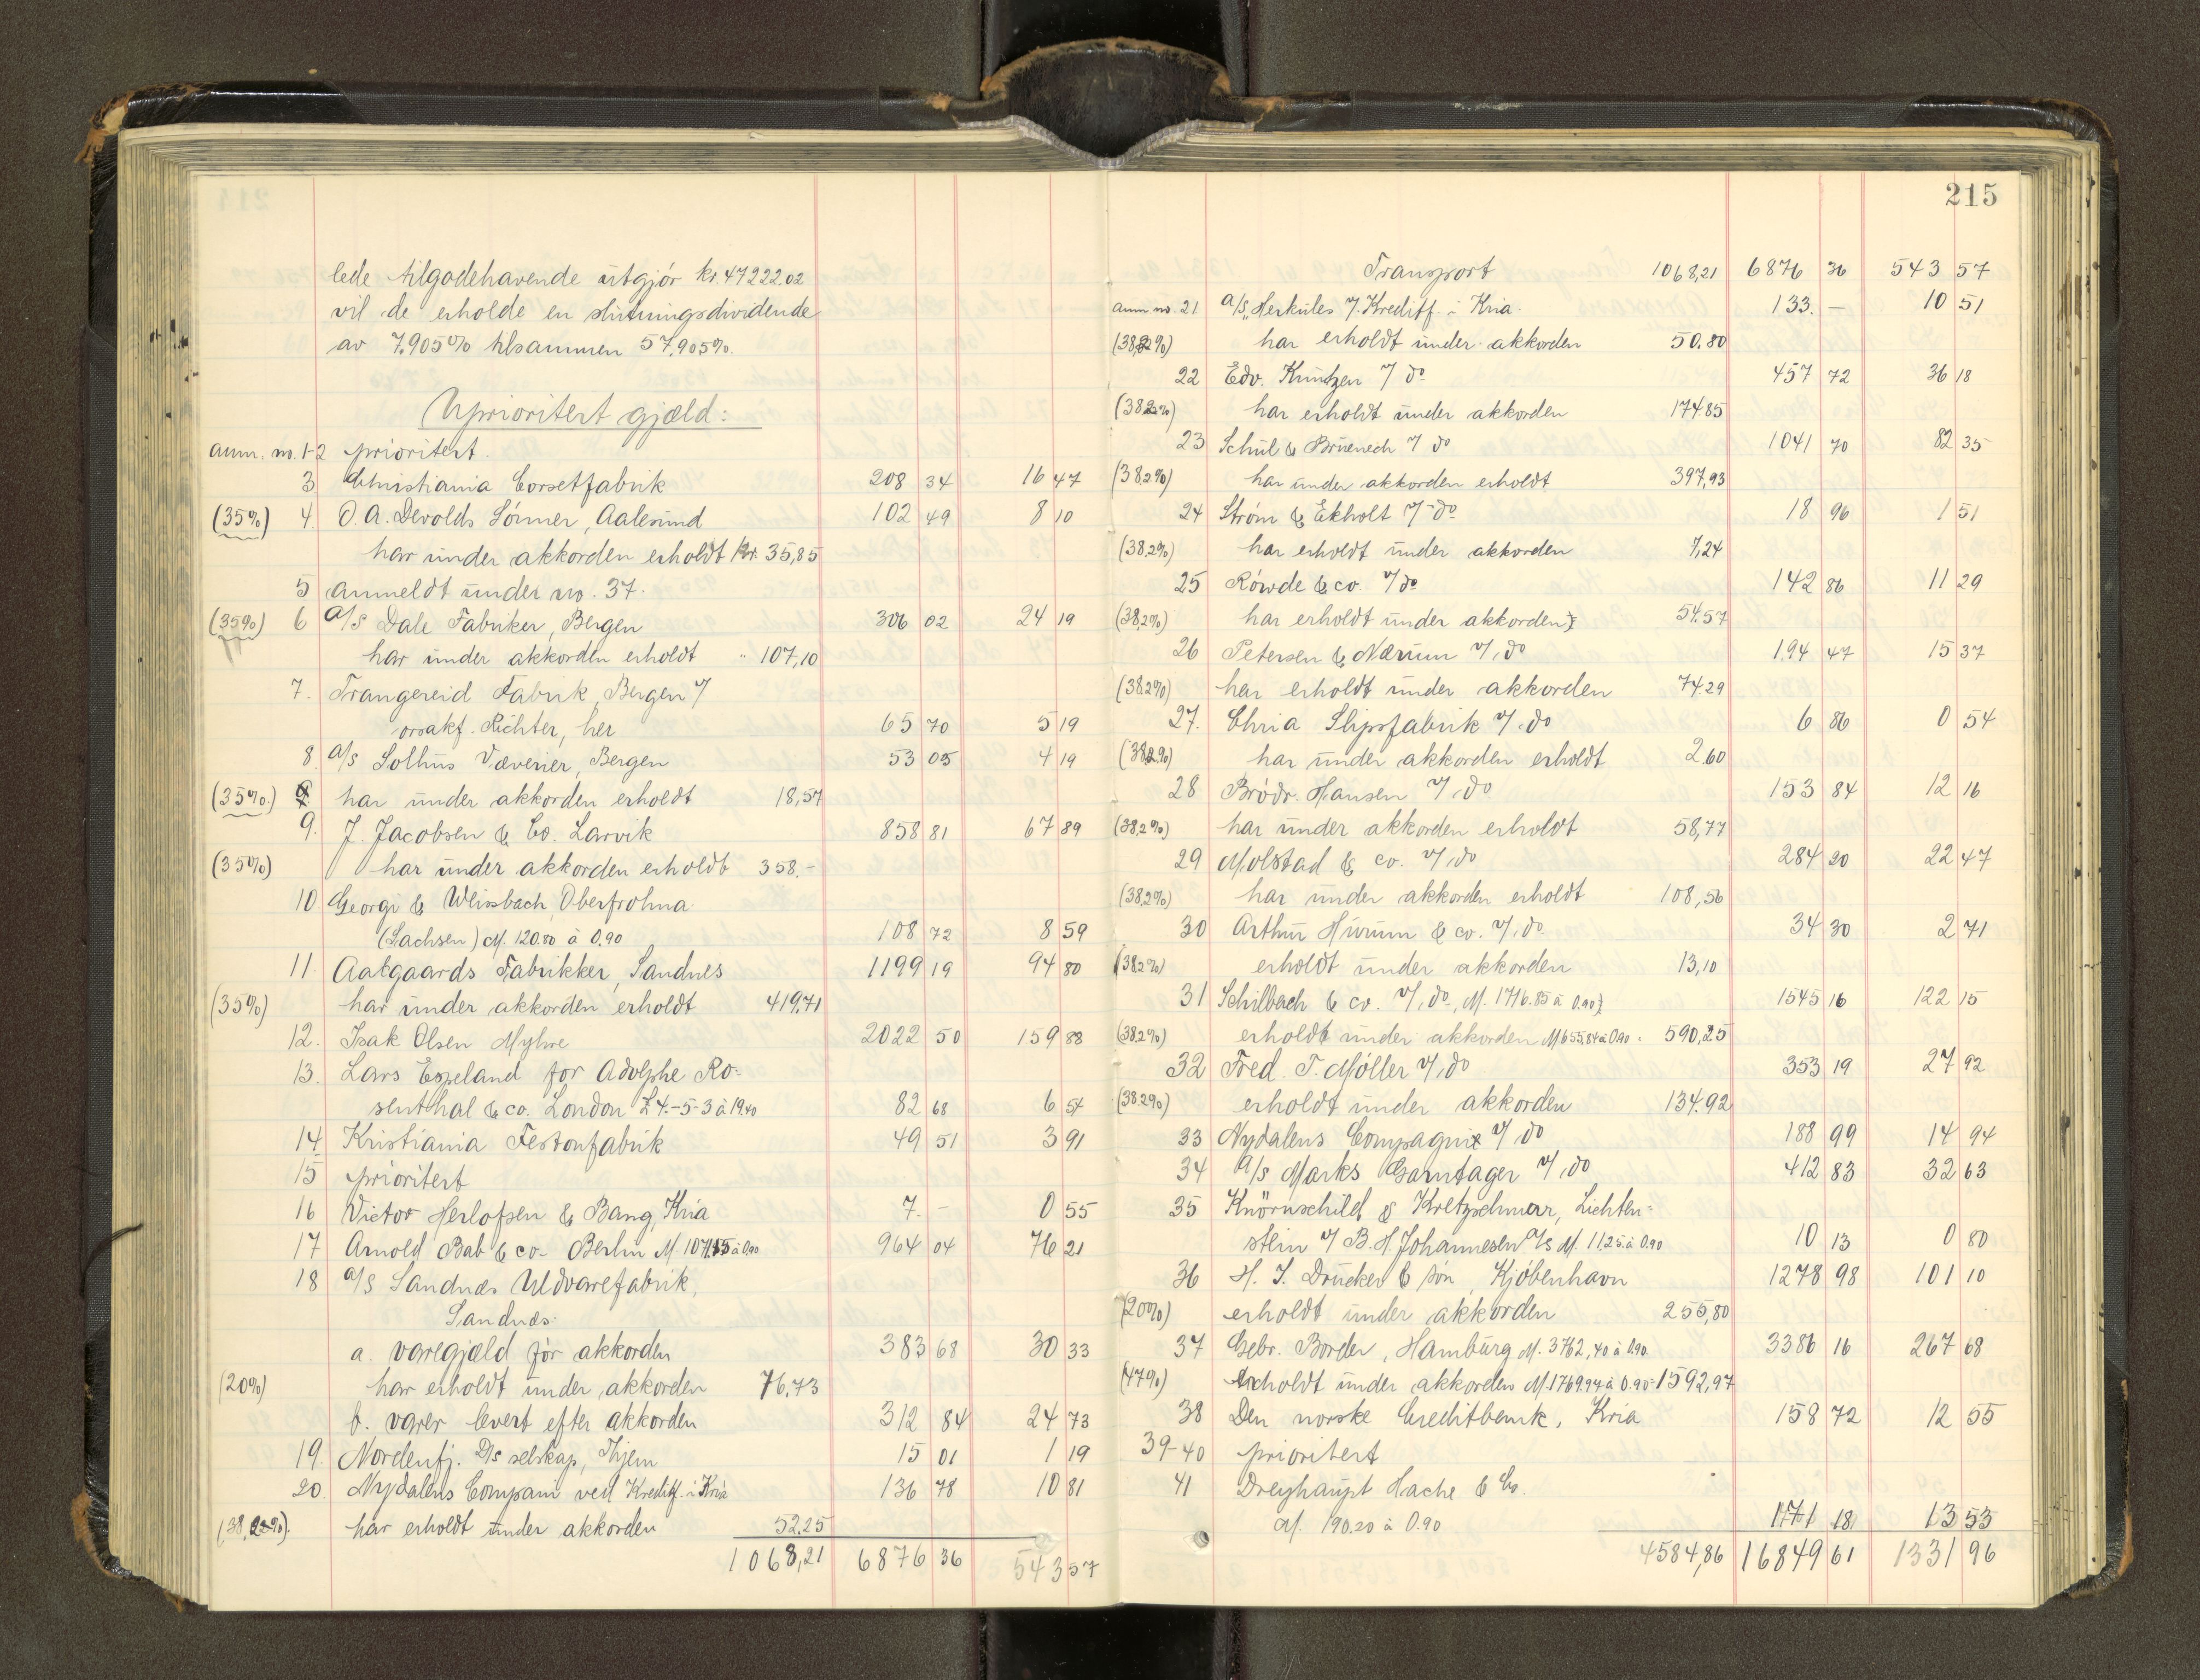 lede tilgodehavende utgjør kr. 47222.02
vil de erholde en slutningsdividende
av 7,905% tilsammen 57,905%.
Uprioritert gjæld:
anm. no. 1-2 prioritert.
3 Christiania Corsetfabrik 208 34 16 47
(35%) 4. O. A. Devolds Sønner, Aalesund 102 49 8 10
har under akkorden erholdt kr. 35,85
5 anmeldt under no. 37.
(35%) 6 a/s Dale Fabriker, Bergen 306 02 24 19
har under akkorden erholdt " 107,10
7. Trangereid Fabrik, Bergen v/
orsakf. Richter, her 65 70 5 19
8. a/s Solhus Væverier, Bergen 53 05 4 19
(35%) har under akkorden erholdt 18,57
9. J. Jacobsen & Co. Larvik 858 81 67 89
(35%) har under akkorden erholdt 358.-
10. Georgi & Weissbach, Oberfrohna
(Sachsen) M. 120.80 à 0.90 108 72 8 59
11. Aalgaards Fabrikker, Sandnes 1199 19 94 80
(35%) har under akkorden erholdt 419,71
12. Isak Olsen Myhre 2022 50 159 88
13. Lars Espeland for Adolphe Ro-
senthal & co. London £ 4.-5-3 à 19.40 82 68 6 54
14 Kristiania Festonfabrik 49 51 3 91
15 prioritert
16 Victor Herlofsen & Bang, Kria 7. - 0 55
17 Arnold Bab & co. Berlin M. 1071.15 à 0.90 964 04 76 21
18 a/s Sandnæs Uldvarefabrik,
Sandnæs.
a. varegjæld før akkorden 383 68 30 33
(20%) har erholdt under akkorden 76,73
b. varer levert efter akkorden 312 84 24 73
19. Nordenfj. D/s selskap, Thjem 15 01 1 19
20. Nydalens Compani ved Kreditf. i Kria 136 78 10 81
(38,2%). har erholdt under akkorden 52.25
1068,21 6876 36 543 57
215
Transport 1068,21 6876 36 543 57
anm. no. 21 a/s "Herkules v/ Kreditf. i Kria. 133. - 10 51
(38,2%) har erholdt under akkorden 50.80
22 Edv. Kuntzen v/ do 457 72 36 18
(38.2%) har erholdt under akkorden 174.85
23 Schul & Bruenech v/ do 1041 70 82 35
(38.2%) har under akkorden erholdt 397,93
24 Strøm & Ekholt v/ do 18 96 1 51
(38,2%) har erholdt under akkorden 7,24
25 Røwde & co. v/ do 142 86 11 29
(38,2%) har erholdt under akkorden 54.57
26 Petersen & Nærum v/ do 194 47 15 37
(38.2%) har erholdt under akkorden 74.29
27. Chria Slipsfabrik v/ do 6 86 0 54
(38.2%) har under akkorden erholdt 2.60
28 Brødr. Hansen v/ do 153 84 12 16
(38,2%) har under akkorden erholdt 58,77
29 Molstad & co. v/ do 284 20 22 47
(38,2%) har under akkorden erholdt 108,56
30 Arthur Hurum & co. v/ do 34 30 2 71
(38.2%) erholdt under akkorden 13,10
31 Schilbach & co. v/ do, M. 1716.85 à 0.90 1545 16 122 15
(38,2%) erholdt under akkorden M 655,84 à 0.90 = 590,25
32 Fred. T. Møller v/ do 353 19 27 92
(38.2%) erholdt under akkorden 134.92
33 Nydalens Compagni v/ do 188 99 14 94
34 a/s Marks Garnlager v/ do 412 83 32 63
35 Knörnschild & Kretzschmerr, Lichten-
stein v/ B. H. Johannesen a/s M. 11.25 à 0.90 10 13 0 80
36 H. I. Drucker & søn, Kjøbenhavn 1278 98 101 10
(20%) erholdt under akkorden 255,80
37 Gebr. Border, Hamburg M. 3762,40 à 0.90 3386 16 267 68
(47%) erholdt under akkorden M. 1769.94 à 0.90 = 1592,97
38 Den norske Creditbank, Kria 158 72 12 55
39-40 prioritert
41 Dreyhaupt Hache & Co.
M. 190.20 à 0.90 171 18 13 53
4584,86 16849 61 1331 96